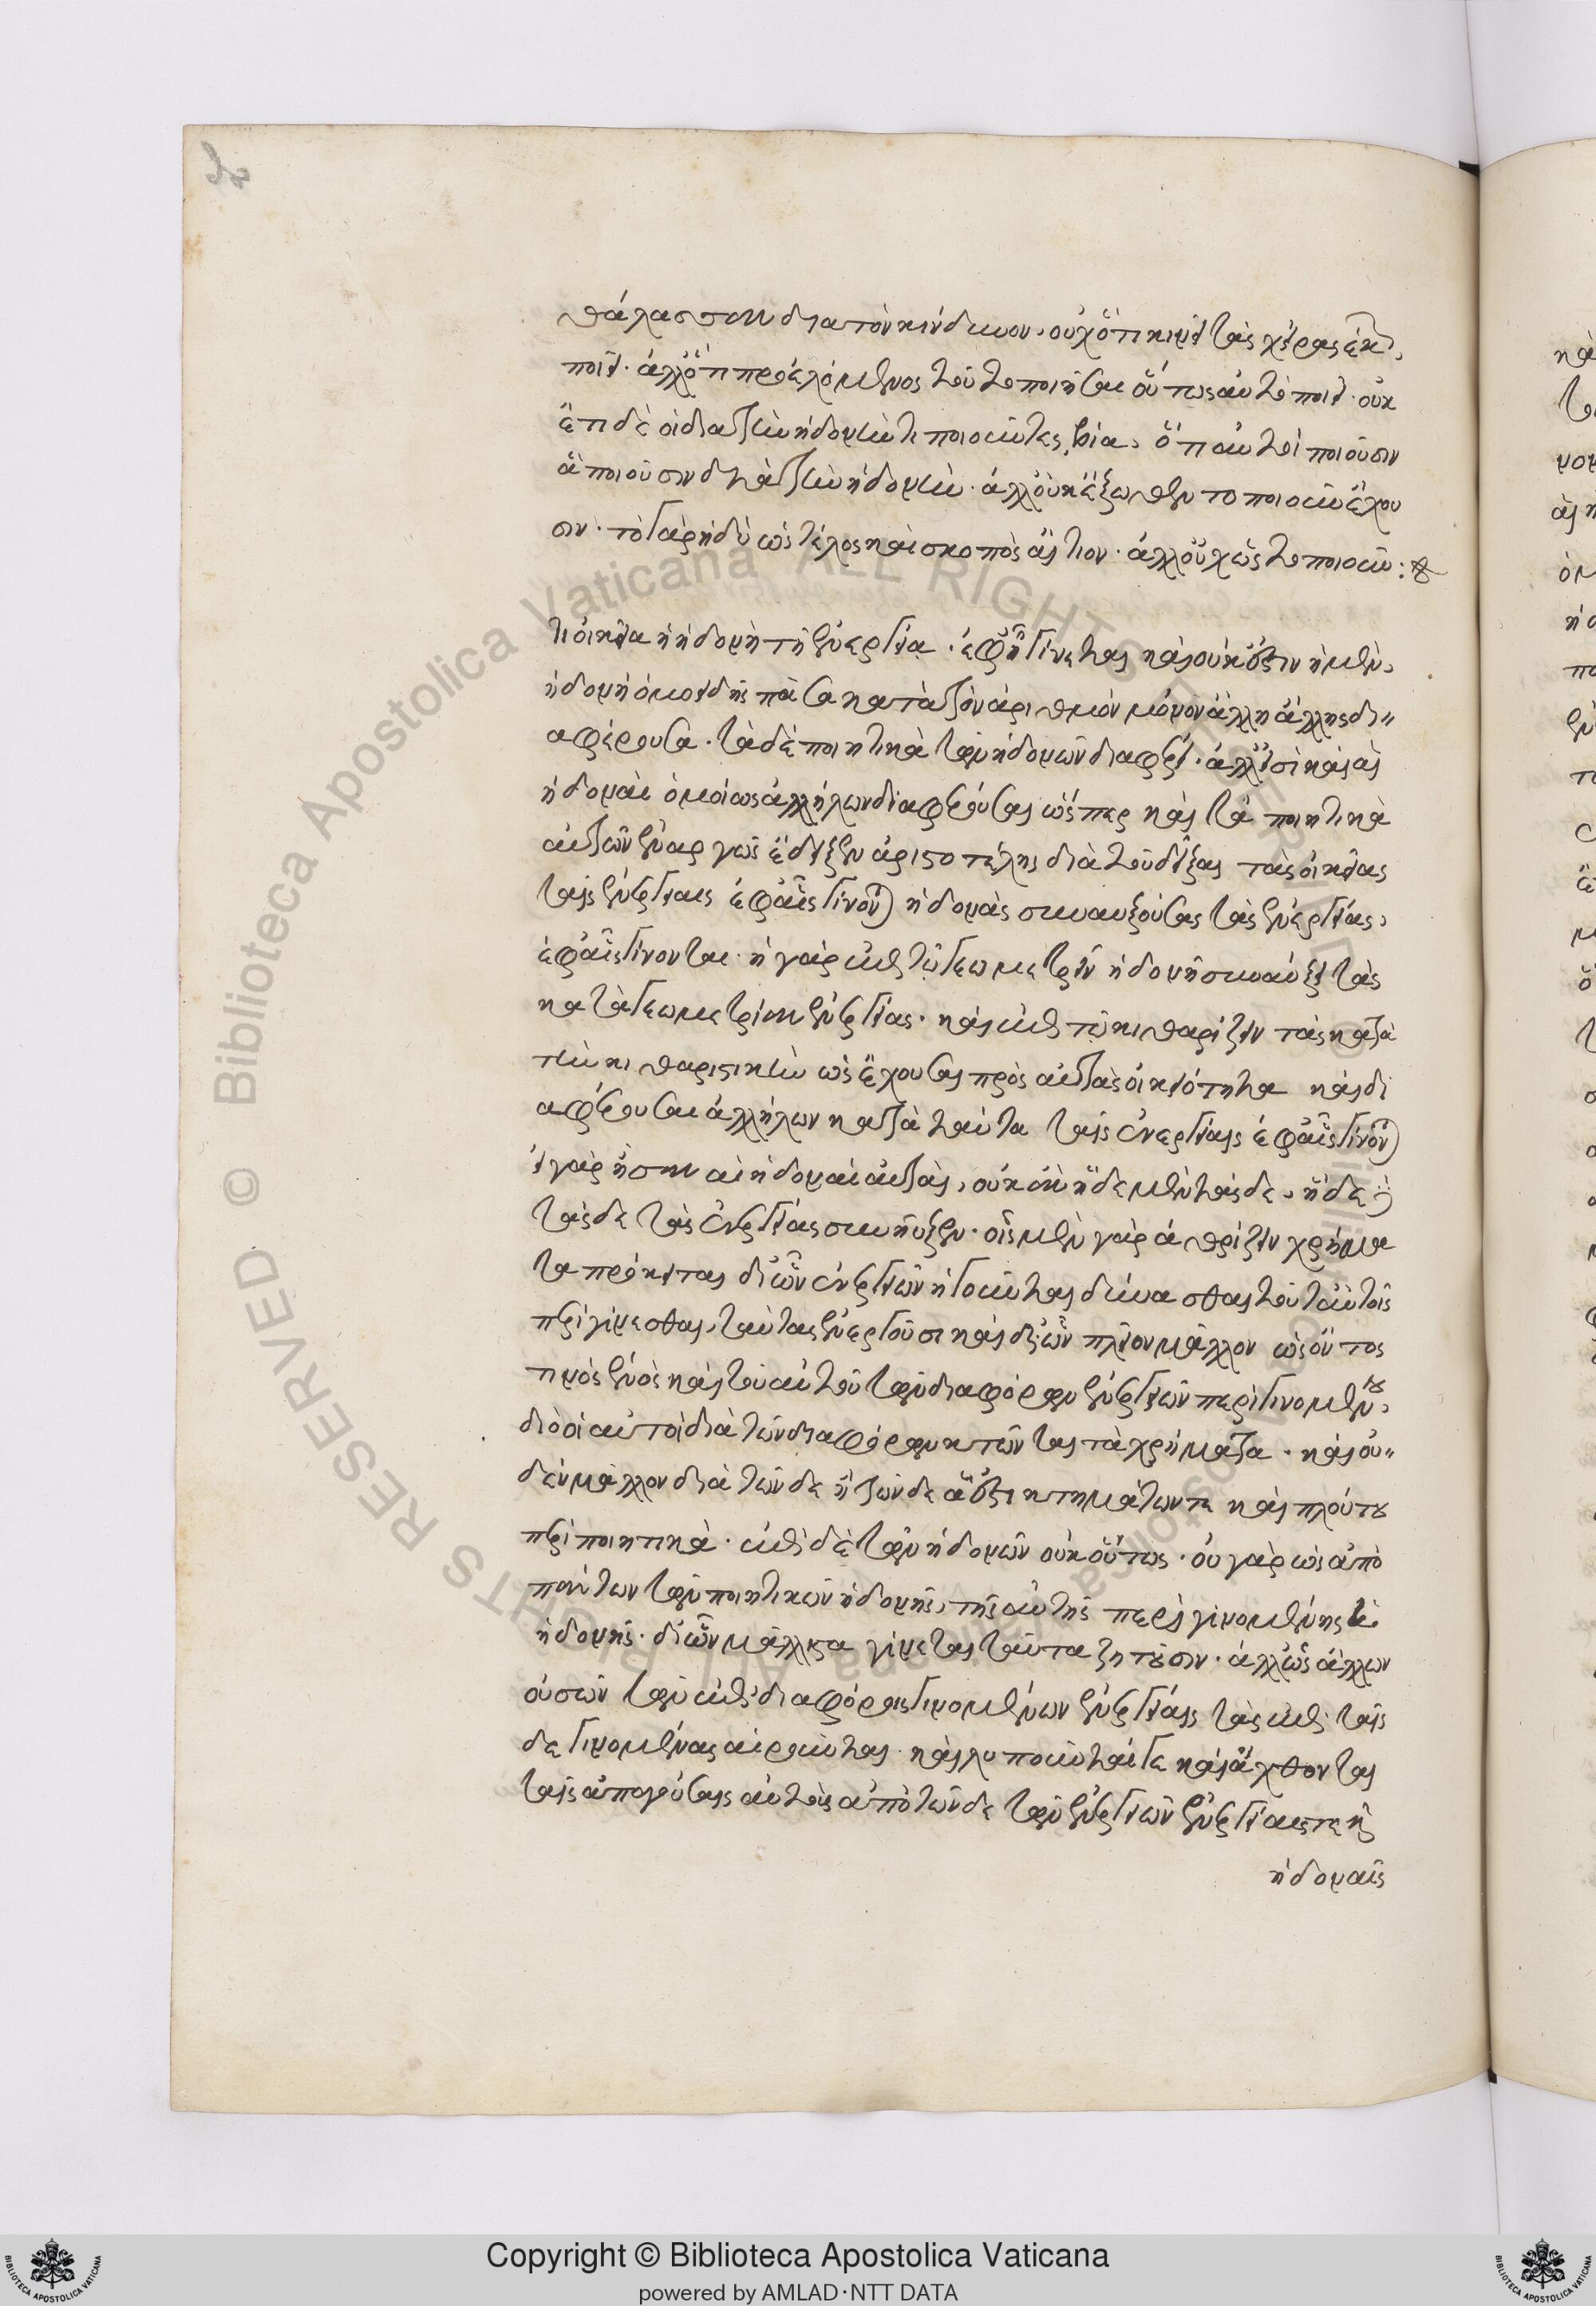 θάλασσαν διὰ τὸν κίνδυνον, οὐχ ὅτι κινεῖ τὰς χεῖρας ἑκὼν
ποιεῖ. ἀλλ' ὅτι προελόμενος τοῦτο ποιῆσαι οὕτως αὐτὸ ποιεῖ. οὐκ
ἔτι δὲ οἱ διὰ τὴν ἡδονήν τι ποιοῦντες, βίᾳ, ὅτι αὐτοὶ ποιοῦσιν
ἃ ποιοῦσιν διὰ τὴν ἡδονήν. ἀλλ' οὐκ ἔξωθεν τὸ ποιοῦν ἔχου
σιν. τὸ γὰρ ἡδὺ ὡς τέλος καὶ σκοπὸς αἴτιον. ἀλλ' οὐχ ὡς τὸ ποιοῦν:
τι οἰκεία ἡ ἡδονὴ τῇ ἐνεργείᾳ. ἐφ' ᾗ γίνεται καὶ οὐκ ἔστιν ἡ μὲν,
ἡδονὴ ὁμοειδὴς πᾶσα κατὰ τὸν ἀριθμὸν μόνον ἄλλη ἄλλης δι
αφέρουσα. τὰ δὲ ποιητικὰ τῶν ἡδονῶν διαφέρει. ἀλλ' εἰσὶ καὶ αἱ
ἡδοναὶ ὁμοίως ἀλλήλων διαφέρουσαι ὥσπερ καὶ τὰ ποιητικὰ
αὐτῶν ἐναργῶς ἔδειξεν ἀριστοτέλης διὰ τοῦ δεῖξαι τὰς οἰκείας
ταῖς ἐνεργείαις ἐφ' αἷς γίνονται ἡδονὰς συναυξούσας τὰς ἐνεργείας,
ἐφ' αἷς γίνονται. ἡ γὰρ ἐπὶ τῷ γεωμετρεῖν ἡδονὴ συναύξει τὰς
κατὰ γεωμετρίαν ἐνεργείας. καὶ ἐπὶ τῷ κιθαρίζειν τὰς κατὰ
τὴν κιθαριστικὴν ὡς ἔχουσαι πρὸς αὐτὰς οἰκειότητα καὶ δι
αφέρουσαι ἀλλήλων κατὰ ταῦτα ταῖς ἐνεργείαις ἐφ' αἷς γίνονται
εἰ γὰρ ἦσαν αἱ ἡδοναὶ αὐταὶ, οὐκ ἂν ἥδε μὲν τάσδε, ἥδε δὲ
τάσδε τὰς ἐνεργείας συνηῦξεν. οἷς μὲν γὰρ ἀθροίζειν χρήμα
τα πρόκειται δι' ὧν ἐνεργειῶν ἡγοῦνται δύνασθαι τοῦτ' αὐτοῖς
περιγίνεσθαι, ταύτας ἐνεργοῦσι καὶ δι' ὧν πλεῖον μᾶλλον ὡς ὄντος
τινὸς ἑνὸς καὶ τοῦ αὐτοῦ τῶν διαφόρων ἐνεργειῶν περιγινομένου,
διὸ οἱ αὐτοὶ διὰ τῶν διαφόρων κτῶνται τὰ χρήματα. καὶ οὐ
δὲν μᾶλλον διὰ τῶνδε ἢ τῶνδε ἅ ἐστι κτημάτων τε καὶ πλούτου
περιποιητικὰ. ἐπὶ δὲ τῶν ἡδονῶν οὐχ οὕτως. οὐ γὰρ ὡς ἀπὸ
πάντων τῶν ποιητικῶν ἡδονῆς, τῆς αὐτῆς περιγινομένης
ἡδονῆς. δι' ὧν μάλιστα γίνεται ταῦτα ζητοῦσιν. ἀλλ' ὡς ἄλλων
οὐσῶν τῶν ἐπὶ διαφόροις γινομένων ἐνεργείαις τὰς ἐπὶ ταῖς
δε γινομένας αἱροῦνται. καὶ λυποῦνταί γε καὶ ἄχθονται
ταῖς ἀπαγούσαις αὐτοὺς ἀπὸ τῶνδε τῶν ἐνεργειῶν ἐνεργείαις τε καὶ
ἡδοναῖς
Copyright © Biblioteca Apostolica Vaticana
powered by AMLAD·NTT DATA